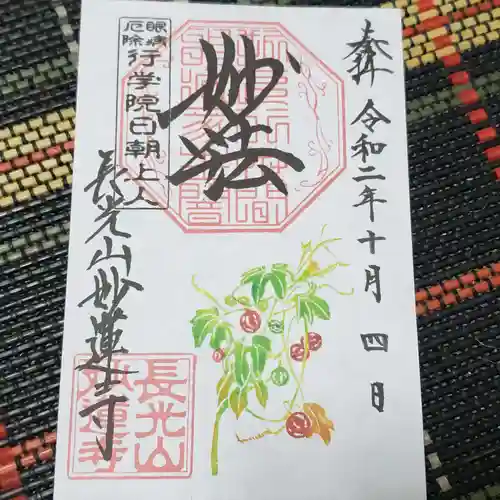 奉拝
令和二年十月四日
妙法
眼病
厄除
行学院日朝上人
長光山妙蓮寺
長光山
妙蓮寺